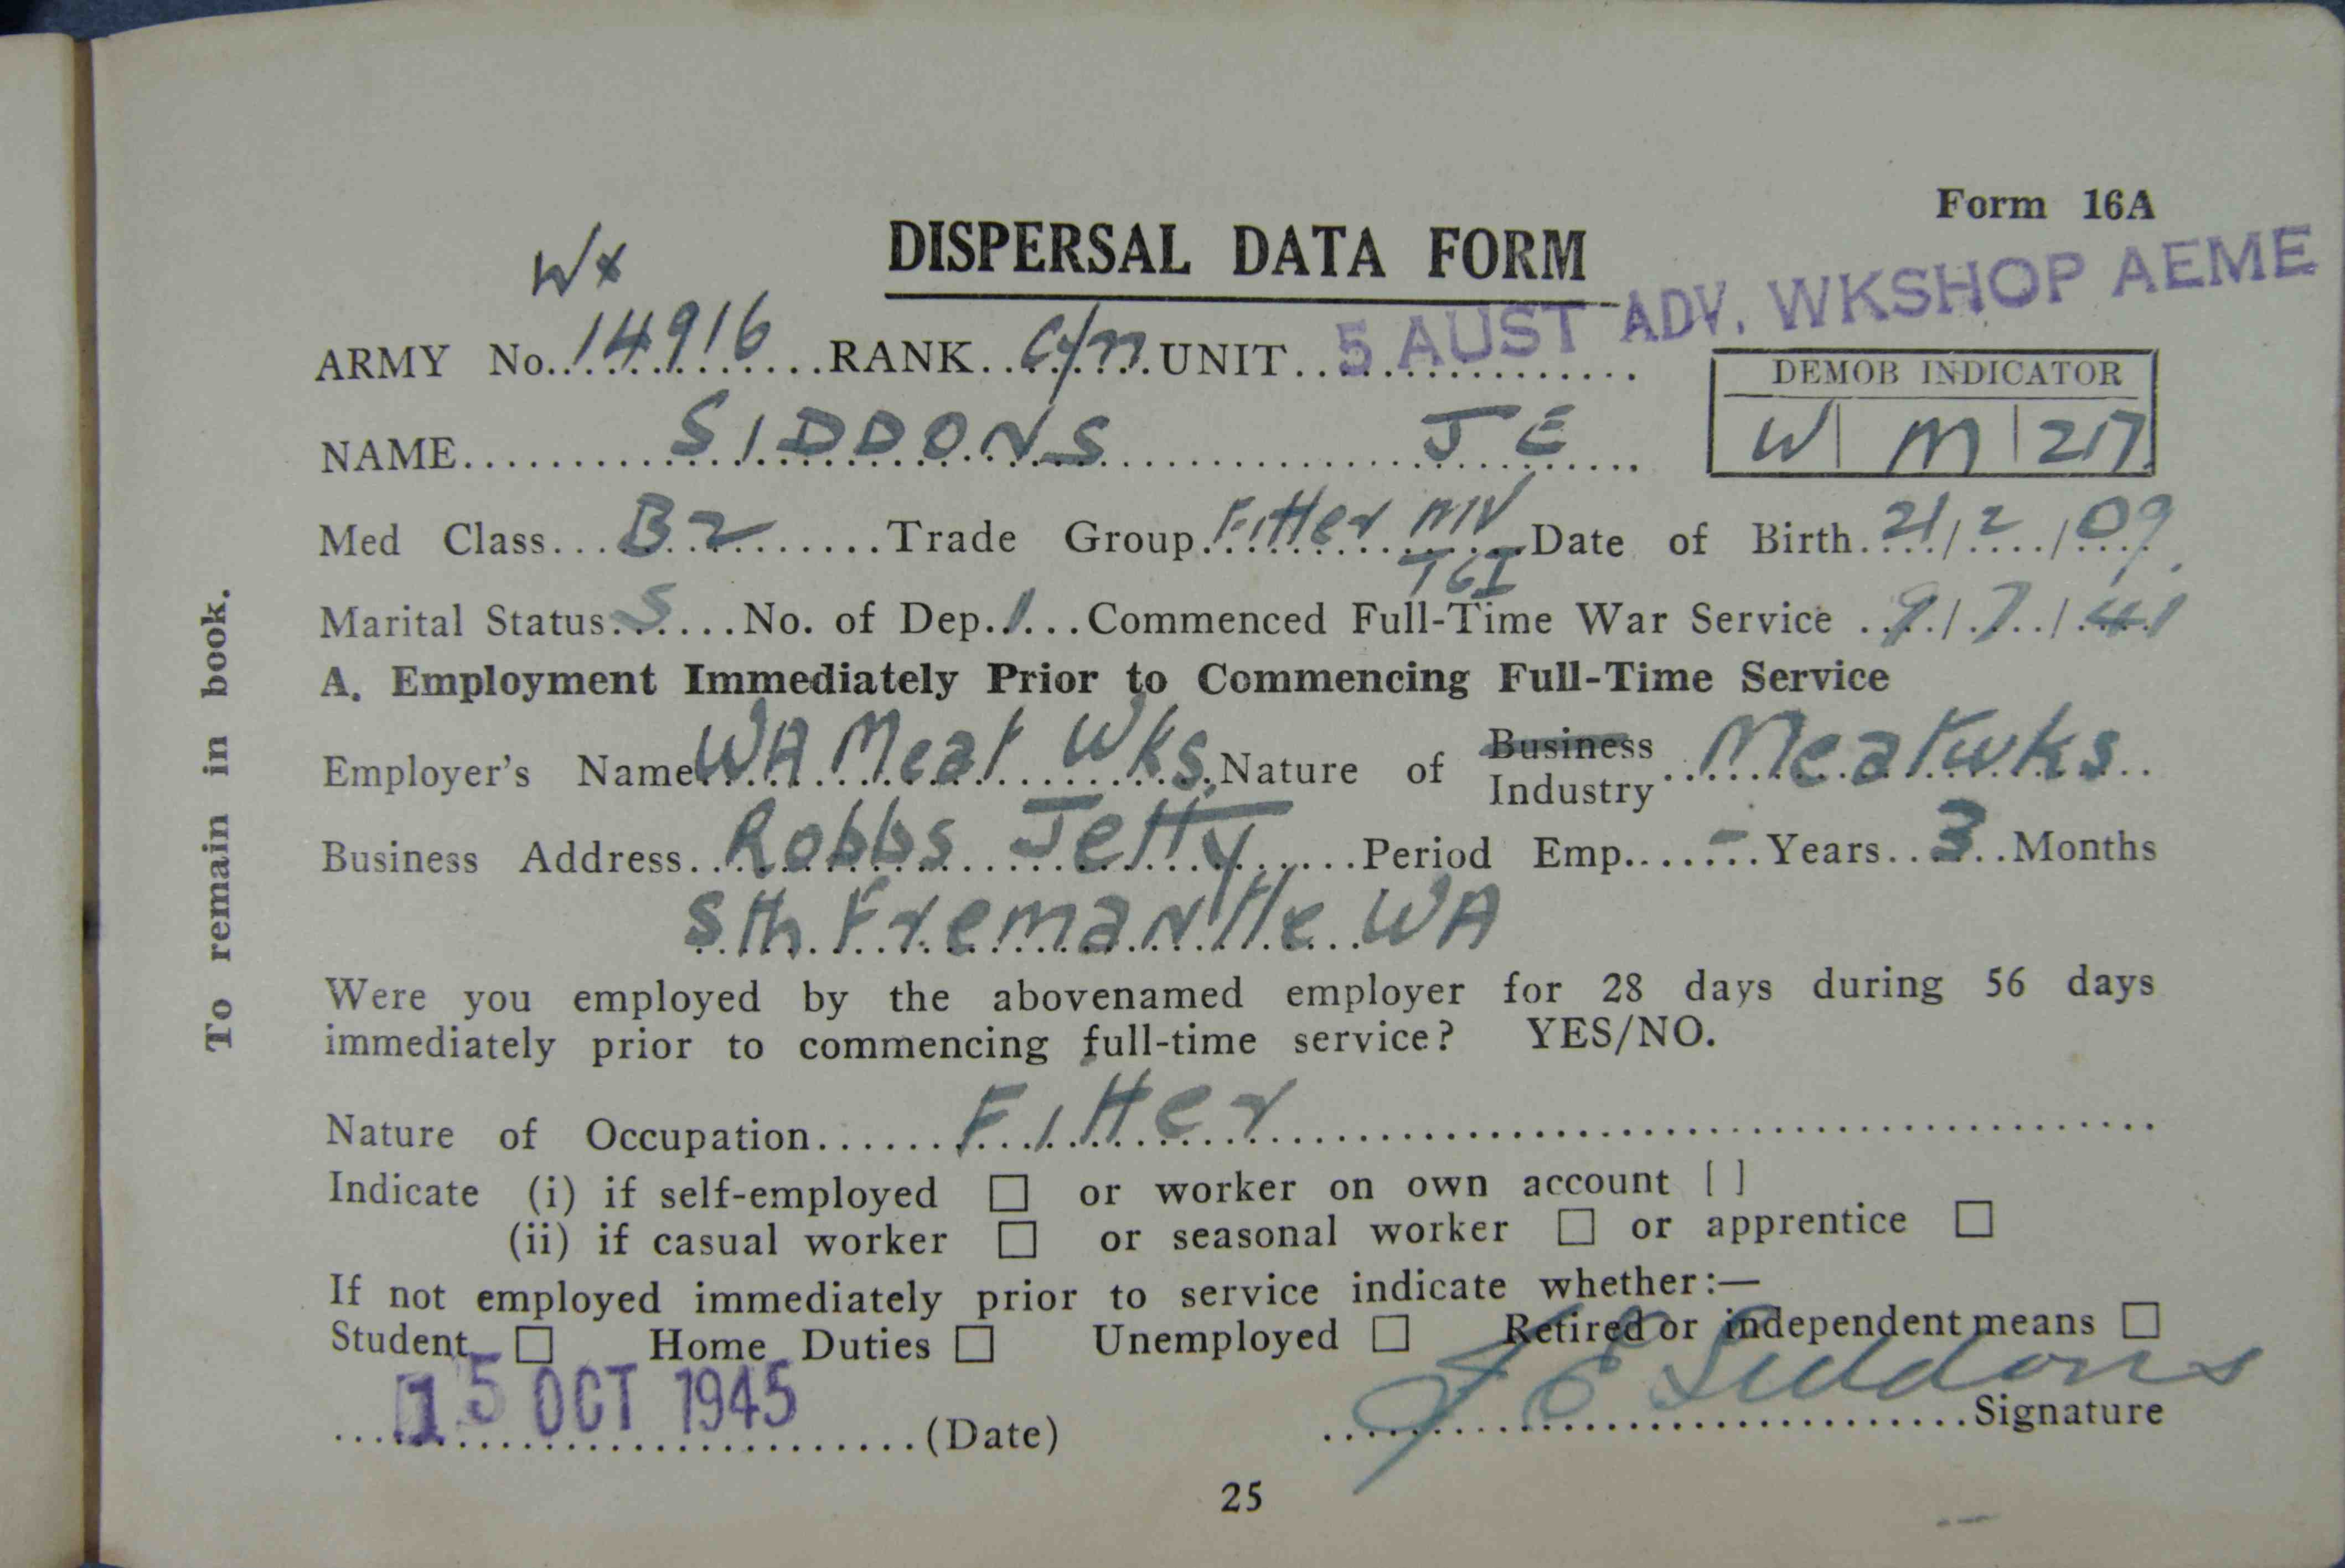 Form 16A
DISPERSAL DATA FORM
5 AUST ADV. WKSHOP AEME
Wx
ARMY No. 14916 RANK Cfn UNIT
DEMOB INDICATOR
W M 217
NAME SIDDONS J E
Med Class B2 Trade Group Fitter MV Date of Birth 21/2/09
TGI
Marital Status S No. of Dep. 1 Commenced Full-Time War Service 9/7/41
A. Employment Immediately Prior to Commencing Full-Time Service
Employer's Name WA Meat Wks. Nature of Business Industry Meatwks
Business Address Robbs Jetty Period Emp. - Years 3 Months
Sth Fremantle WA
Were you employed by the abovenamed employer for 28 days during 56 days
immediately prior to commencing full-time service? YES/NO.
Nature of Occupation Fitter
Indicate (i) if self-employed or worker on own account
(ii) if casual worker or seasonal worker or apprentice
If not employed immediately prior to service indicate whether:—
Student Home Duties Unemployed Retired or independent means
15 OCT 1945 (Date) J E Siddons Signature
25
To remain in book.